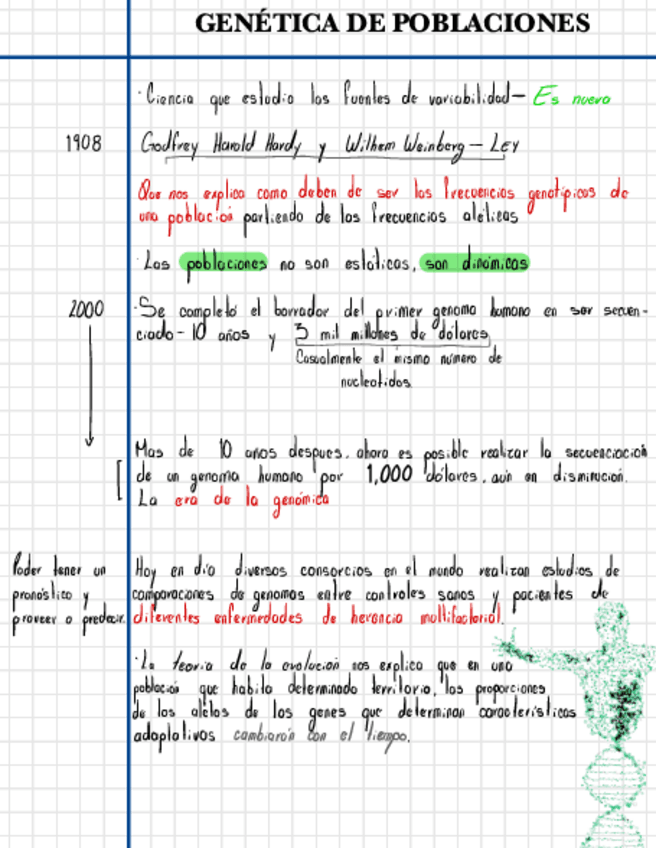 GENÉTICA DE POBLACIONES
· Ciencia que estudia las fuentes de variabilidad – Es nueva
1908
Godfrey Harold Hardy y Wilhem Weinberg – LEY
Que nos explica como deben de ser las frecuencias genotípicas de
una población partiendo de las frecuencias alélicas
· Las poblaciones no son estáticas, son dinámicas
2000
· Se completó el borrador del primer genoma humano en ser secuen-
ciado – 10 años y 3 mil millones de dólares
Casualmente el mismo número de
nucleotidos
Mas de 10 años despues, ahora es posible realizar la secuenciación
de un genoma humano por 1,000 dólares, aún en disminución.
La era de la genómica
Poder tener un
pronóstico y
proveer o predecir.
Hoy en día diversos consorcios en el mundo realizan estudios de
comparaciones de genomas entre controles sanos y pacientes de
diferentes enfermedades de herencia multifactorial.
· La teoría de la evolución nos explica que en una
población que habita determinado territorio, las proporciones
de los alelos de los genes que determinan características
adaptativas cambiarán con el tiempo.